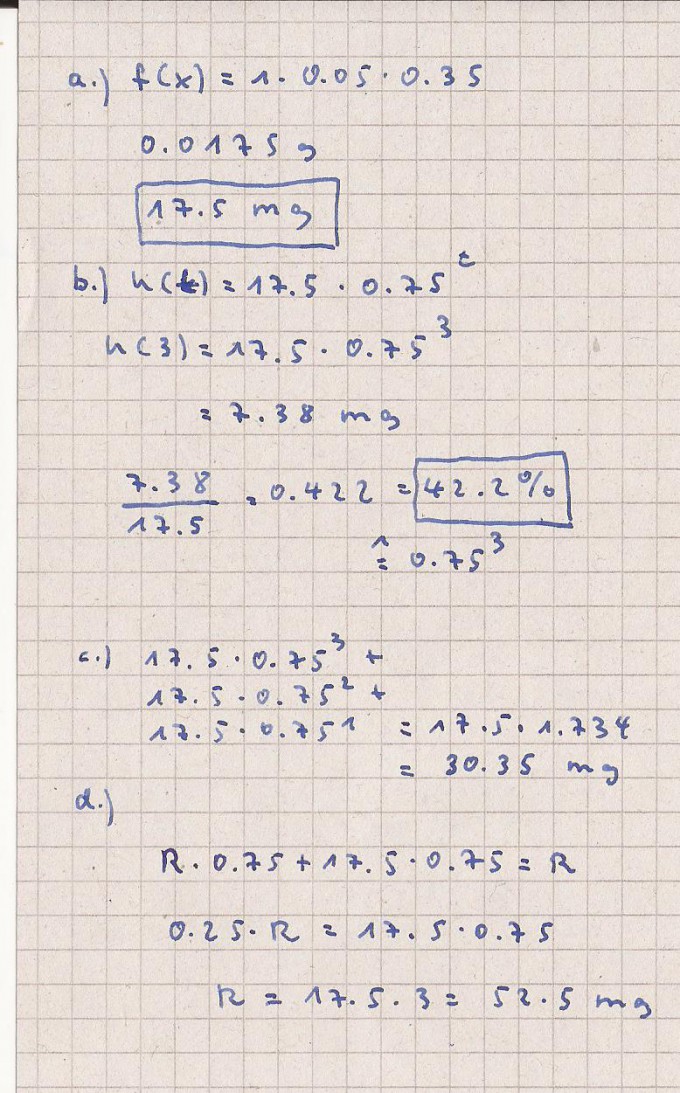 a.) f(x) = 1 · 0.05 · 0.35
0.0175 g
17.5 mg
b.) h(t) = 17.5 · 0.75^t
h(3) = 17.5 · 0.75^3
= 7.38 mg
7.38/17.5 = 0.422 = 42.2%
≙ 0.75^3
c.) 17.5 · 0.75^3 +
17.5 · 0.75^2 +
17.5 · 0.75^1 = 17.5 · 1.734
= 30.35 mg
d.)
R · 0.75 + 17.5 · 0.75 = R
0.25 · R = 17.5 · 0.75
R = 17.5 · 3 = 52.5 mg